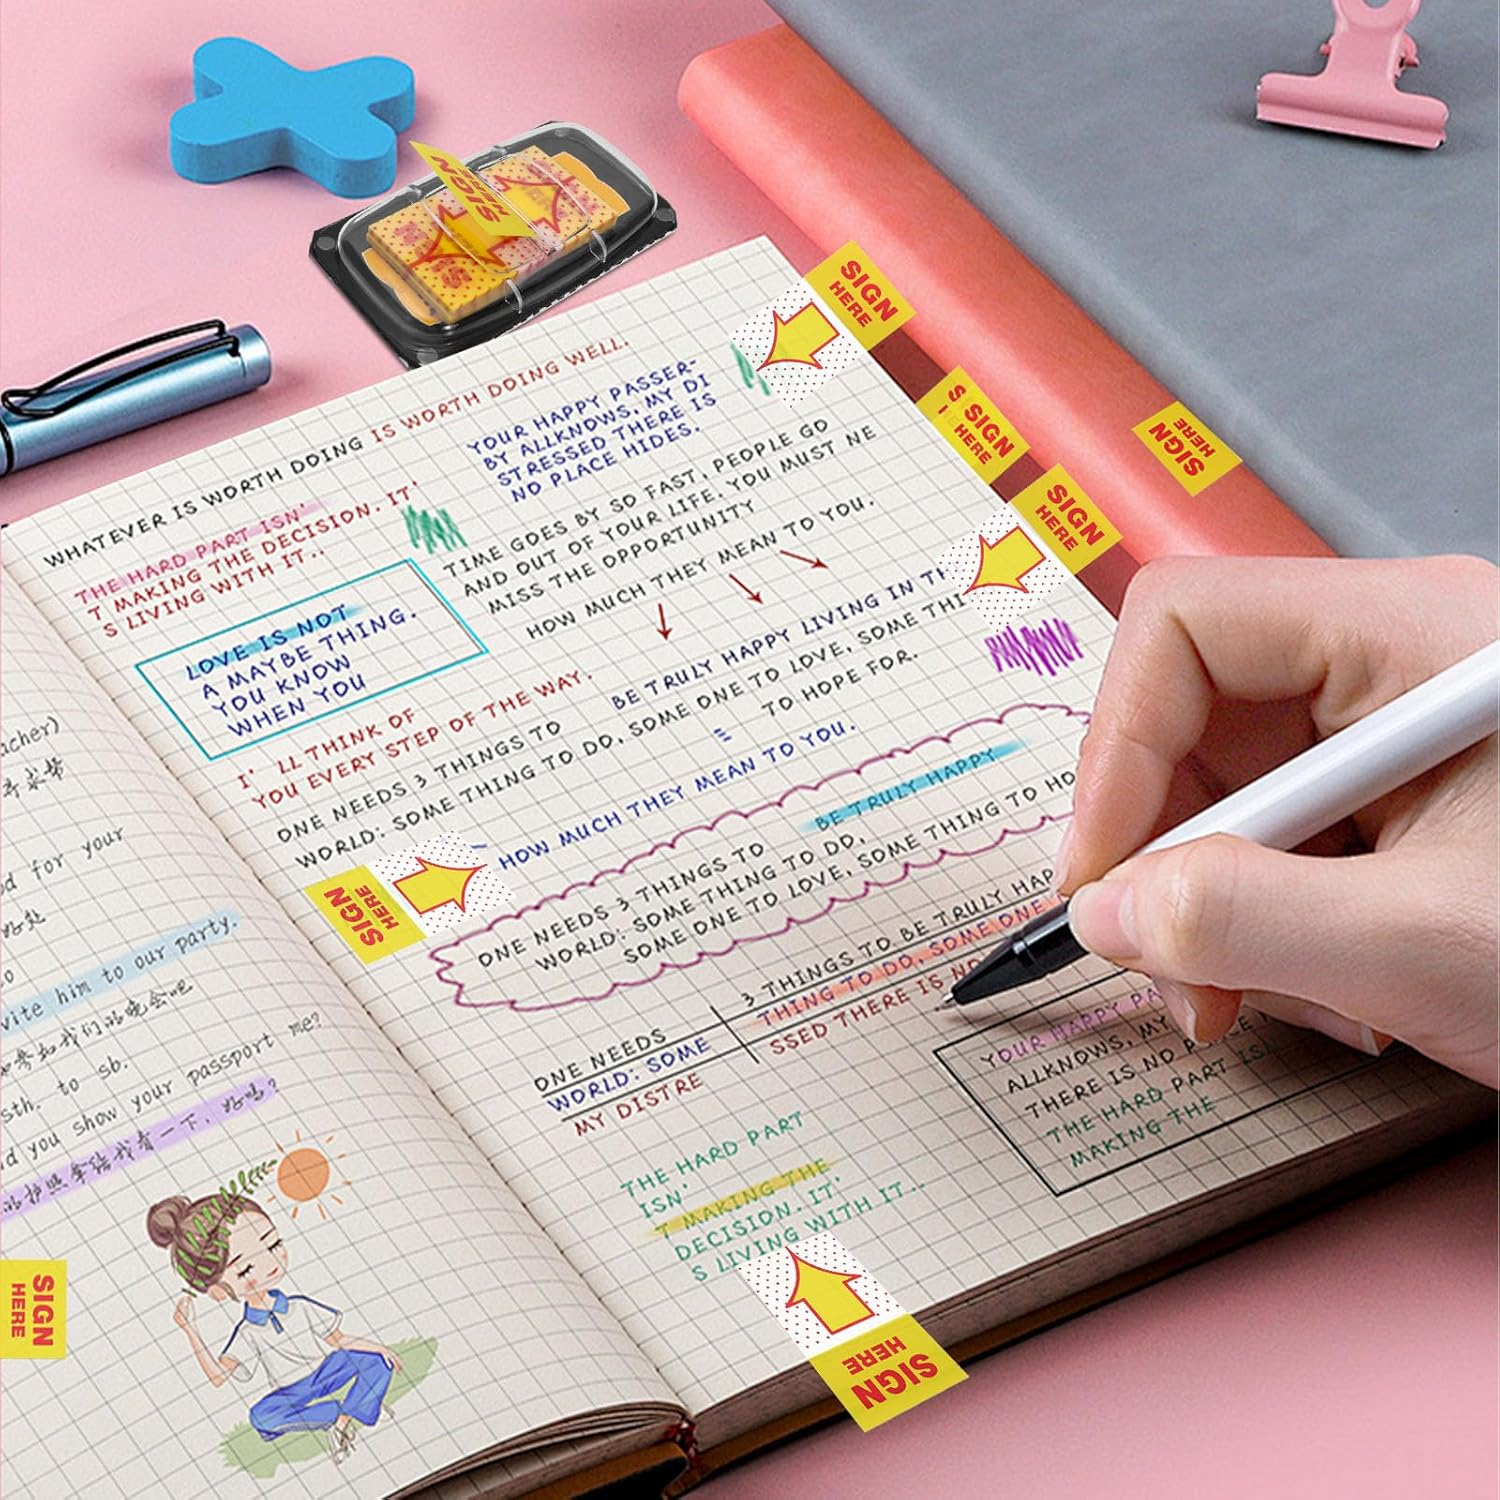 SIGN
HERE
SIGN
HERE
S SIGN
HERE
SIGN
HERE
SIGN
HERE
WHATEVER IS WORTH DOING IS WORTH DOING WELL.
YOUR HAPPY PASSER-
BY ALLKNOWS, MY DI
STRESSED THERE IS
NO PLACE HIDES.
THE HARD PART ISN'
T MAKING THE DECISION. IT'
S LIVING WITH IT..
TIME GOES BY SO FAST, PEOPLE GO
AND OUT OF YOUR LIFE. YOU MUST NE
MISS THE OPPORTUNITY
HOW MUCH THEY MEAN TO YOU.
LOVE IS NOT
A MAYBE THING.
YOU KNOW
WHEN YOU
BE TRULY HAPPY LIVING IN TH
I' LL THINK OF
YOU EVERY STEP OF THE WAY.
ONE NEEDS 3 THINGS TO
WORLD: SOME THING TO DO, SOME ONE TO LOVE, SOME THI
TO HOPE FOR.
HOW MUCH THEY MEAN TO YOU.
SIGN
HERE
BE TRULY HAPPY
ONE NEEDS 3 THINGS TO
WORLD: SOME THING TO DO,
SOME ONE TO LOVE, SOME THING TO HO
3 THINGS TO BE TRULY HAP
ONE NEEDS
THING TO DO, SOME ONE
WORLD: SOME
SSED THERE IS NO
MY DISTRE
YOUR HAPPY PA
ALLKNOWS, MY
THERE IS NO PLACE
THE HARD PART ISN
MAKING THE
THE HARD PART
ISN'
T MAKING THE
DECISION. IT'
S LIVING WITH IT..
SIGN
HERE
acher)
寻求帮
d for your
好处
vite him to our party.
参加我们的晚会吧
sth. to sb.
d you show your passport me?
的护照拿给我看一下，好吗？
SIGN
HERE